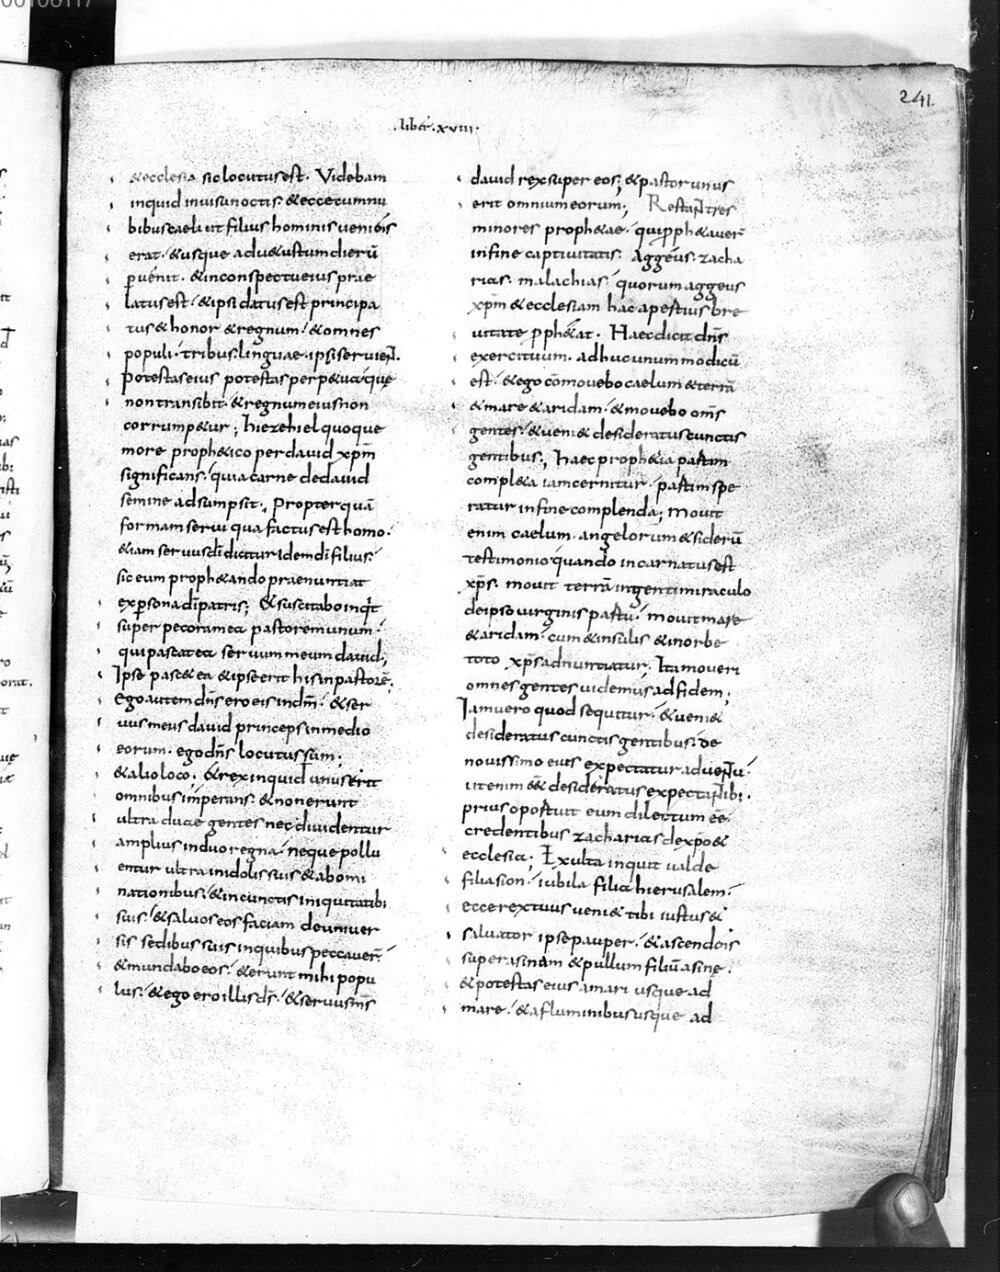 241.
.liber.xviii.
&ecclesia sic locutus est. Videbam
inquid in uisu noctis. & ecce cum nu
bibus caeli ut filius hominis ueniens
erat. & usque ad u&ustum dierū
puenit. & in conspectu eius prae
latus est. & ipsi datus est principa
tus & honor & regnum. & omnes
populi. tribus. linguae. ipsi seruient.
Potestas eius potestas perp&ua. que
non transibit. & regnum eius non
corrump&ur; hiezehiel quoque
more proph&ico per dauid xpm̄
significans. quia carne de dauid
semine adsumpsit. Propter quā
formam serui qua factus est homo.
&iam seruus dī dicitur idem dī filius.
sic eum proph&ando praenuntiat
ex persona dī patris; & suscitabo inqt
super pecora mea pastorem unum.
qui pascat ea seruum meum dauid;
Ipse pasc& ea & ipse erit his in pastorē.
Ego autem dn̄s ero eis in dm̄. & ser
uus meus dauid princeps in medio
eorum. ego dn̄s locutus sum;
& alio loco; & rex inquid unus erit
omnibus imperans. & non erunt
ultra duae gentes nec diuidentur
amplius in duo regna. neque pollu
entur ultra in idolis suis & abomi
nationibus. & in cunctis iniquitatib;
suis. & saluos eos faciam de uniuer
sis sedibus suis in quibus peccauer̄
& mundabo eos. & erunt mihi popu
lus. & ego ero illis ds̄. & seruus ms̄
dauid rex super eos; & pastor unus
erit omnium eorum; Restant tres
minores proph&ae. qui pph&auer̄
in fine captiuitatis. Aggeus. zacha
rias. malachias. quorum aggeus
xpm̄ & ecclesiam hac apertius bre
uitate pph&at. Haec dicit dn̄s
exercituum. adhuc unum modicū
est. & ego cōmouebo caelum & terrā
& mare & aridam. & mouebo oms̄
gentes. & ueni& desideratus cunctis
gentibus; Haec proph&ia partim
compl&a iam cernitur. partim spe
ratur in fine complenda; mouit
enim caelum. angelorum & siderū
testimonio quando incarnatus est
xps̄. mouit terrā ingenti miraculo
de ipso uirginis partu. mouit mare
& aridam. cum & insulis & in orbe
toto xps̄ adnuntiatur. Ita moueri
omnes gentes uidemus ad fidem;
Iam uero quod sequitur. & ueni&
desideratus cunctis gentibus. de
nouissimo eius expectatur aduentu.
ut enim eē& desideratus expectantib;
prius oportuit eum dilectum eē
credentibus zacharias de xpo &
ecclesia; Exulta inquit ualde
filia sion. iubila filia hierusalem.
ecce rex tuus ueni& tibi iustus &
saluator ipse pauper. & ascendens
super asinam & pullum filiū asine.
& potestas eius a mari usque ad
mare. & a fluminibus usque ad